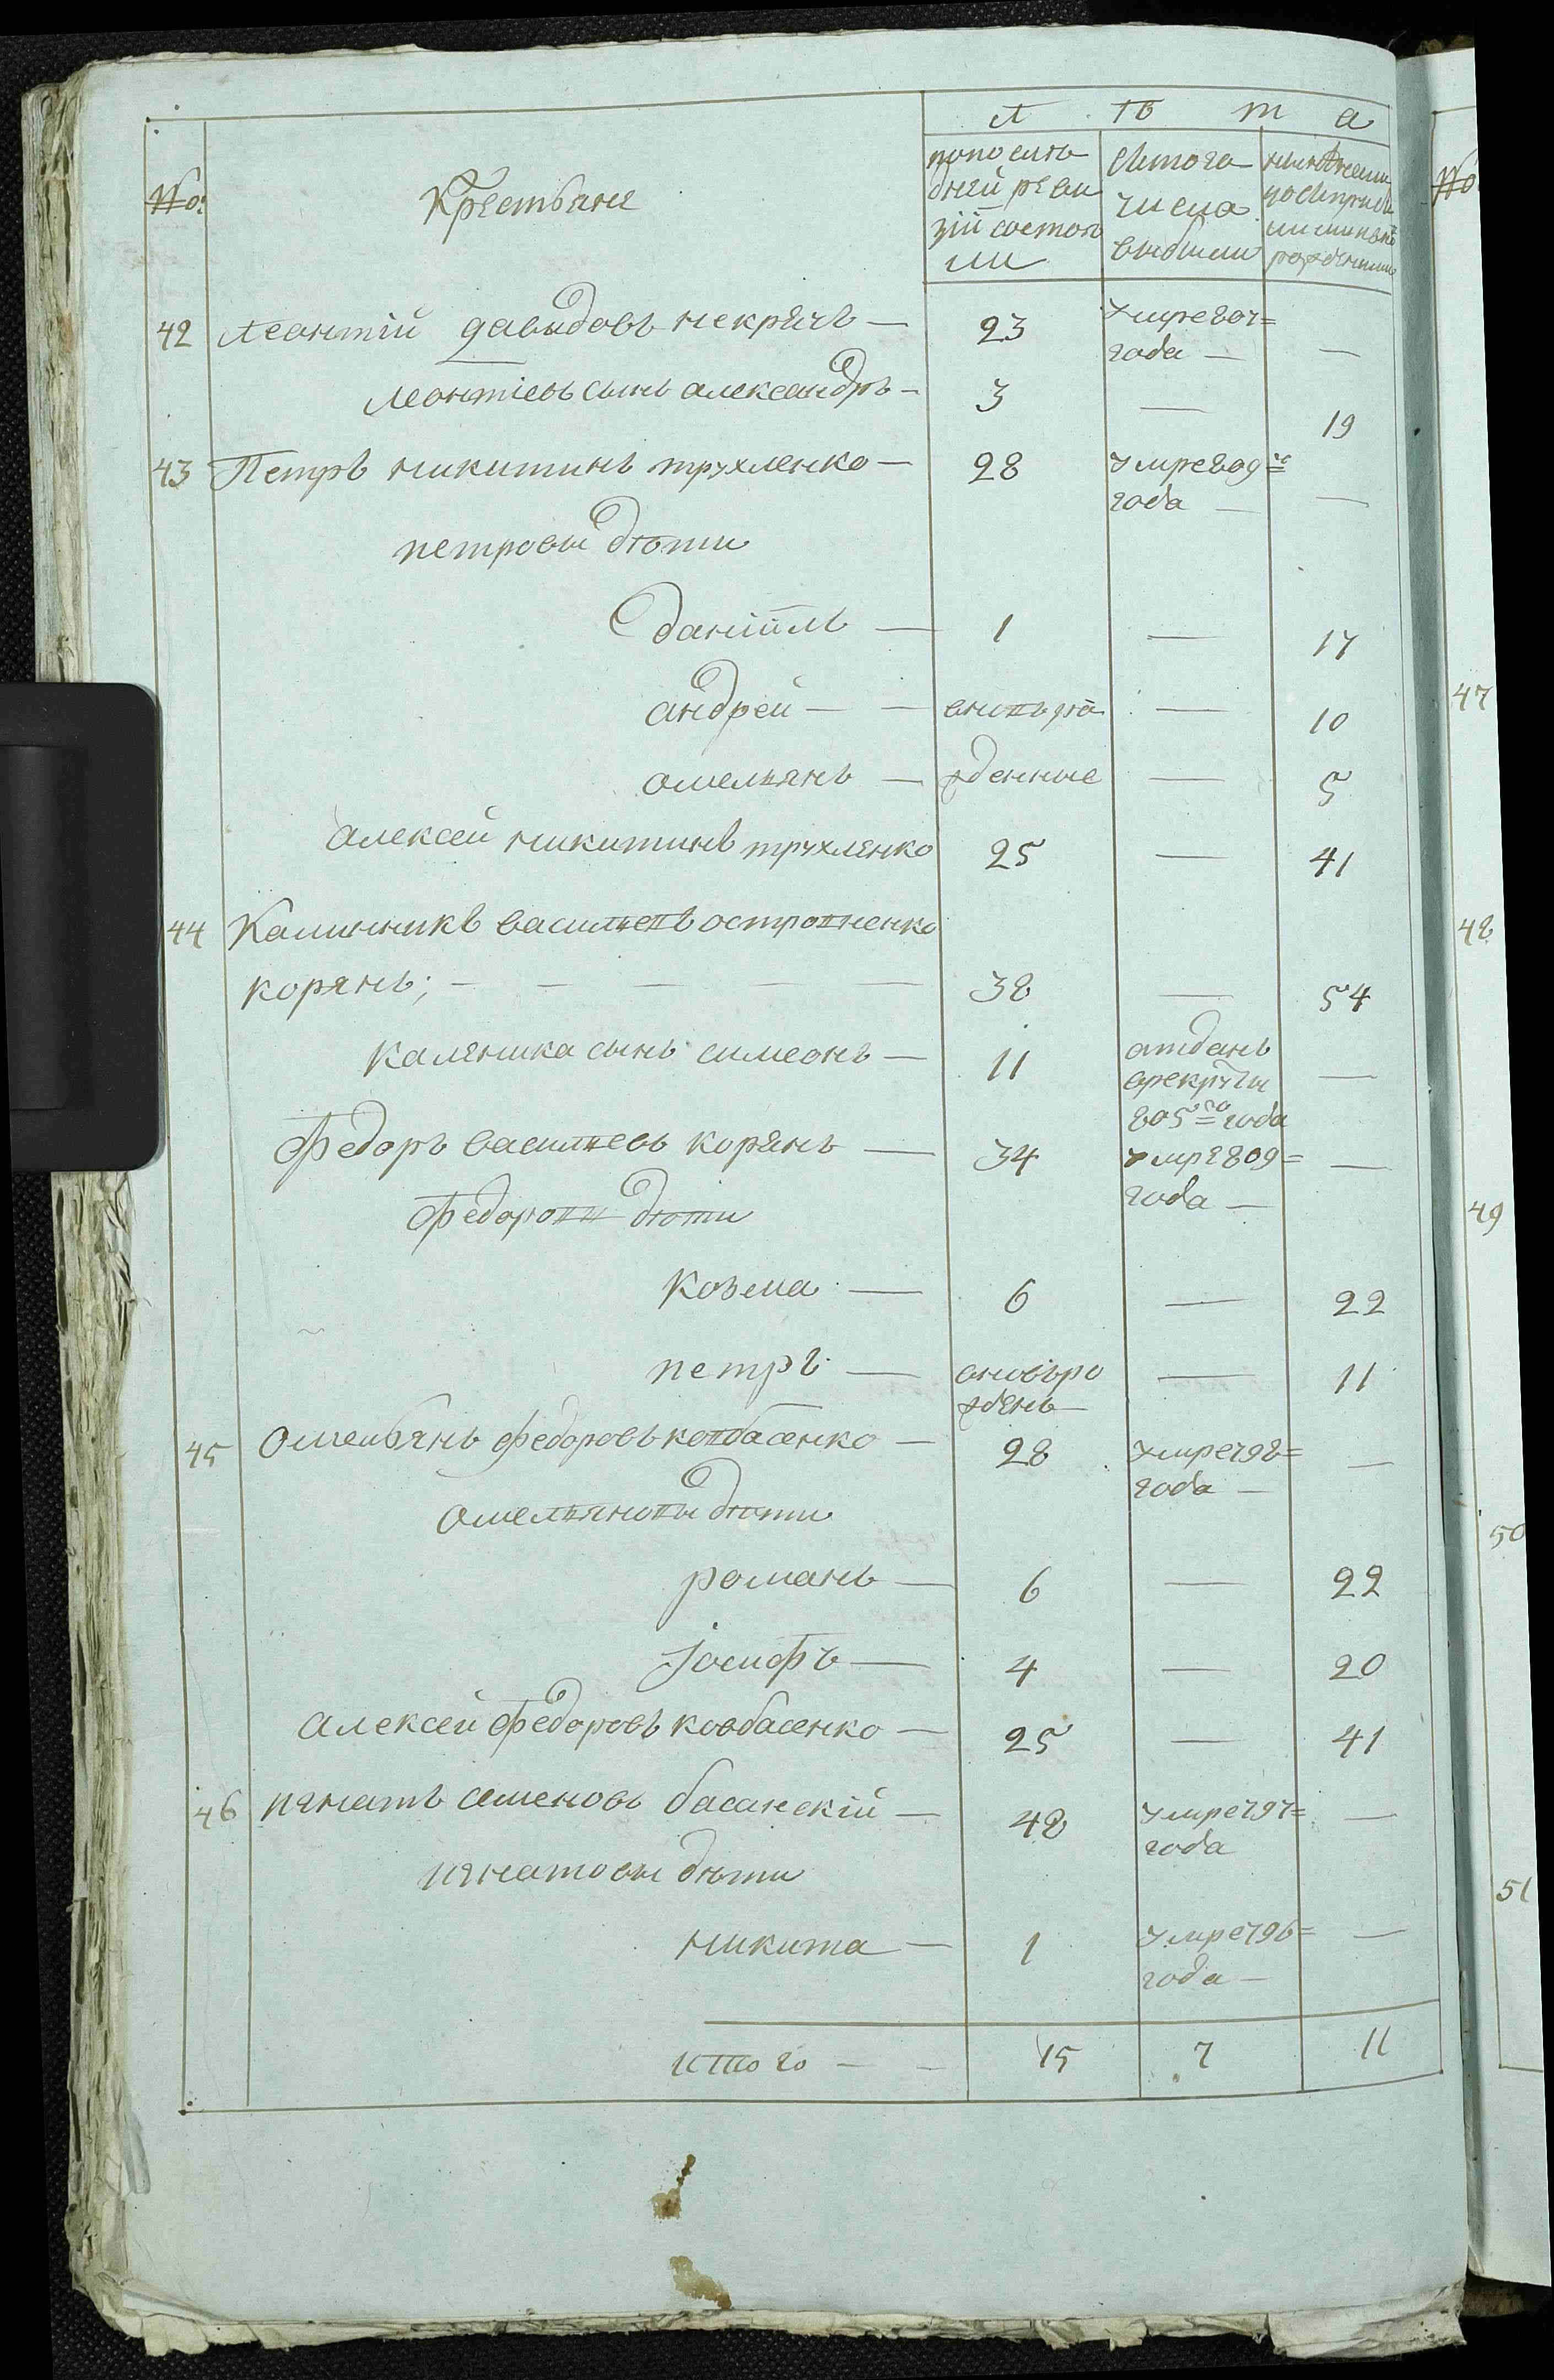 Лѣта
№:
Крестьяне
попослѣ
дней реви
зiи состоя
ли
Истого
числа
выбыли
42 Леонтiй давыдовъ некрячъ — 23 умре807= года — —
леонтiевъ сынъ александръ — 3 — 19
43 Петръ никитинъ трухленко — 28 умре809го года — —
петровы дѣти
данiилъ — 1 — 17
андрей — — вновь ро — 10
омельянъ — жденные — 5
алексей никитинъ трухленко 25 — 41
44 Калинникъ васильевъ островненко
корянъ; — — — — — 38 — 54
каленика сынъ симеонъ — 11 отданъ —
врекруты
805го года
Федоръ васильевъ корянъ — 34 умре809= —
года —
Федоровы дѣти
козма — 6 — 22
петръ — вновьро — 11
жденъ
45 Омельянъ федоровъ ковбасенко — 28 умре798= —
года —
омельяновы дѣти
романъ — 6 — 22
Iосифъ — 4 — 20
алексей Федоровъ ковбасенко — 25 — 41
46 игнатъ семеновъ басанскiй — 48 умре797= —
года
игнатовы дѣти
никита — 1 умре796= —
года —
итого — — 15 7 11
№
47
48
49
50
51